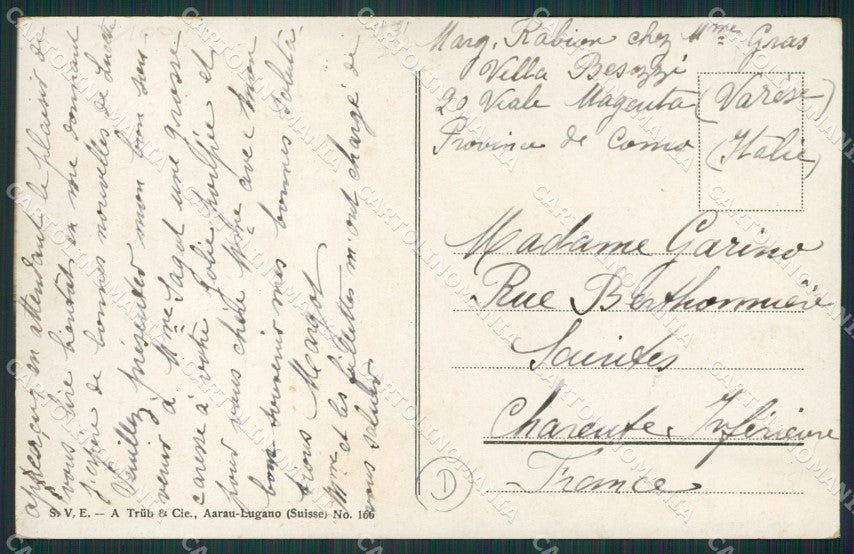 aperçu, en attendant le plaisir de
vous lire bientôt en me donnant
j'espère de bonnes nouvelles de Lucette
Veuillez présenter mon bon sou-
venir à Mme Sagot une grosse
caresse à votre jolie et
pour vous chère Mme avec mon
bon souvenir mes bonnes saluta-
tions Margot
Mme et les fillettes m'ont chargé de
vous saluer
Marg. Rabion chez Mme Gras
Villa Besozzi
20 Viale Magenta (Varèse)
Province de Como (Italie)
Madame Garino
Rue Berthonnière
Saintes
Charente Inférieure
France
D
S. V. E. — A Trüb & Cie., Aarau-Lugano (Suisse) No. 166
CARTOLINOMANIA